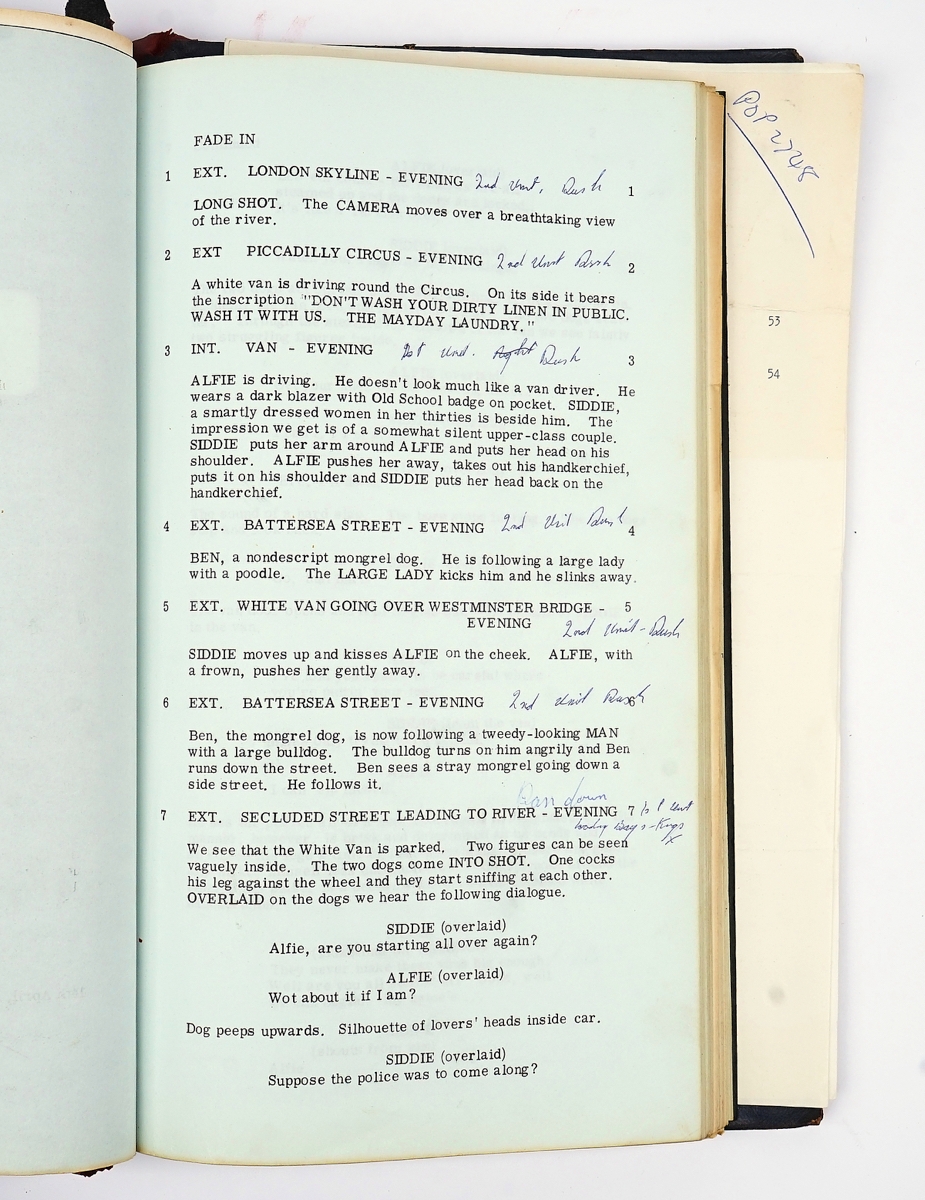 FADE IN
1 EXT. LONDON SKYLINE - EVENING 2nd Unit, Dusk 1
LONG SHOT. The CAMERA moves over a breathtaking view
of the river.
2 EXT PICCADILLY CIRCUS - EVENING 2nd Unit Dusk 2
A white van is driving round the Circus. On its side it bears
the inscription "DON'T WASH YOUR DIRTY LINEN IN PUBLIC.
WASH IT WITH US. THE MAYDAY LAUNDRY."
3 INT. VAN - EVENING 1st Unit. Dusk 3
ALFIE is driving. He doesn't look much like a van driver. He
wears a dark blazer with Old School badge on pocket. SIDDIE,
a smartly dressed women in her thirties is beside him. The
impression we get is of a somewhat silent upper-class couple.
SIDDIE puts her arm around ALFIE and puts her head on his
shoulder. ALFIE pushes her away, takes out his handkerchief,
puts it on his shoulder and SIDDIE puts her head back on the
handkerchief.
4 EXT. BATTERSEA STREET - EVENING 2nd Unit Dusk 4
BEN, a nondescript mongrel dog. He is following a large lady
with a poodle. The LARGE LADY kicks him and he slinks away.
5 EXT. WHITE VAN GOING OVER WESTMINSTER BRIDGE - 5
EVENING 2nd Unit - Dusk
SIDDIE moves up and kisses ALFIE on the cheek. ALFIE, with
a frown, pushes her gently away.
6 EXT. BATTERSEA STREET - EVENING 2nd Unit Dusk 6
Ben, the mongrel dog, is now following a tweedy-looking MAN
with a large bulldog. The bulldog turns on him angrily and Ben
runs down the street. Ben sees a stray mongrel going down a
side street. He follows it.
down
7 EXT. SECLUDED STREET LEADING TO RIVER - EVENING 7
We see that the White Van is parked. Two figures can be seen
vaguely inside. The two dogs come INTO SHOT. One cocks
his leg against the wheel and they start sniffing at each other.
OVERLAID on the dogs we hear the following dialogue.
SIDDIE (overlaid)
Alfie, are you starting all over again?
ALFIE (overlaid)
Wot about it if I am?
Dog peeps upwards. Silhouette of lovers' heads inside car.
SIDDIE (overlaid)
Suppose the police was to come along?
POP 2748
53
54